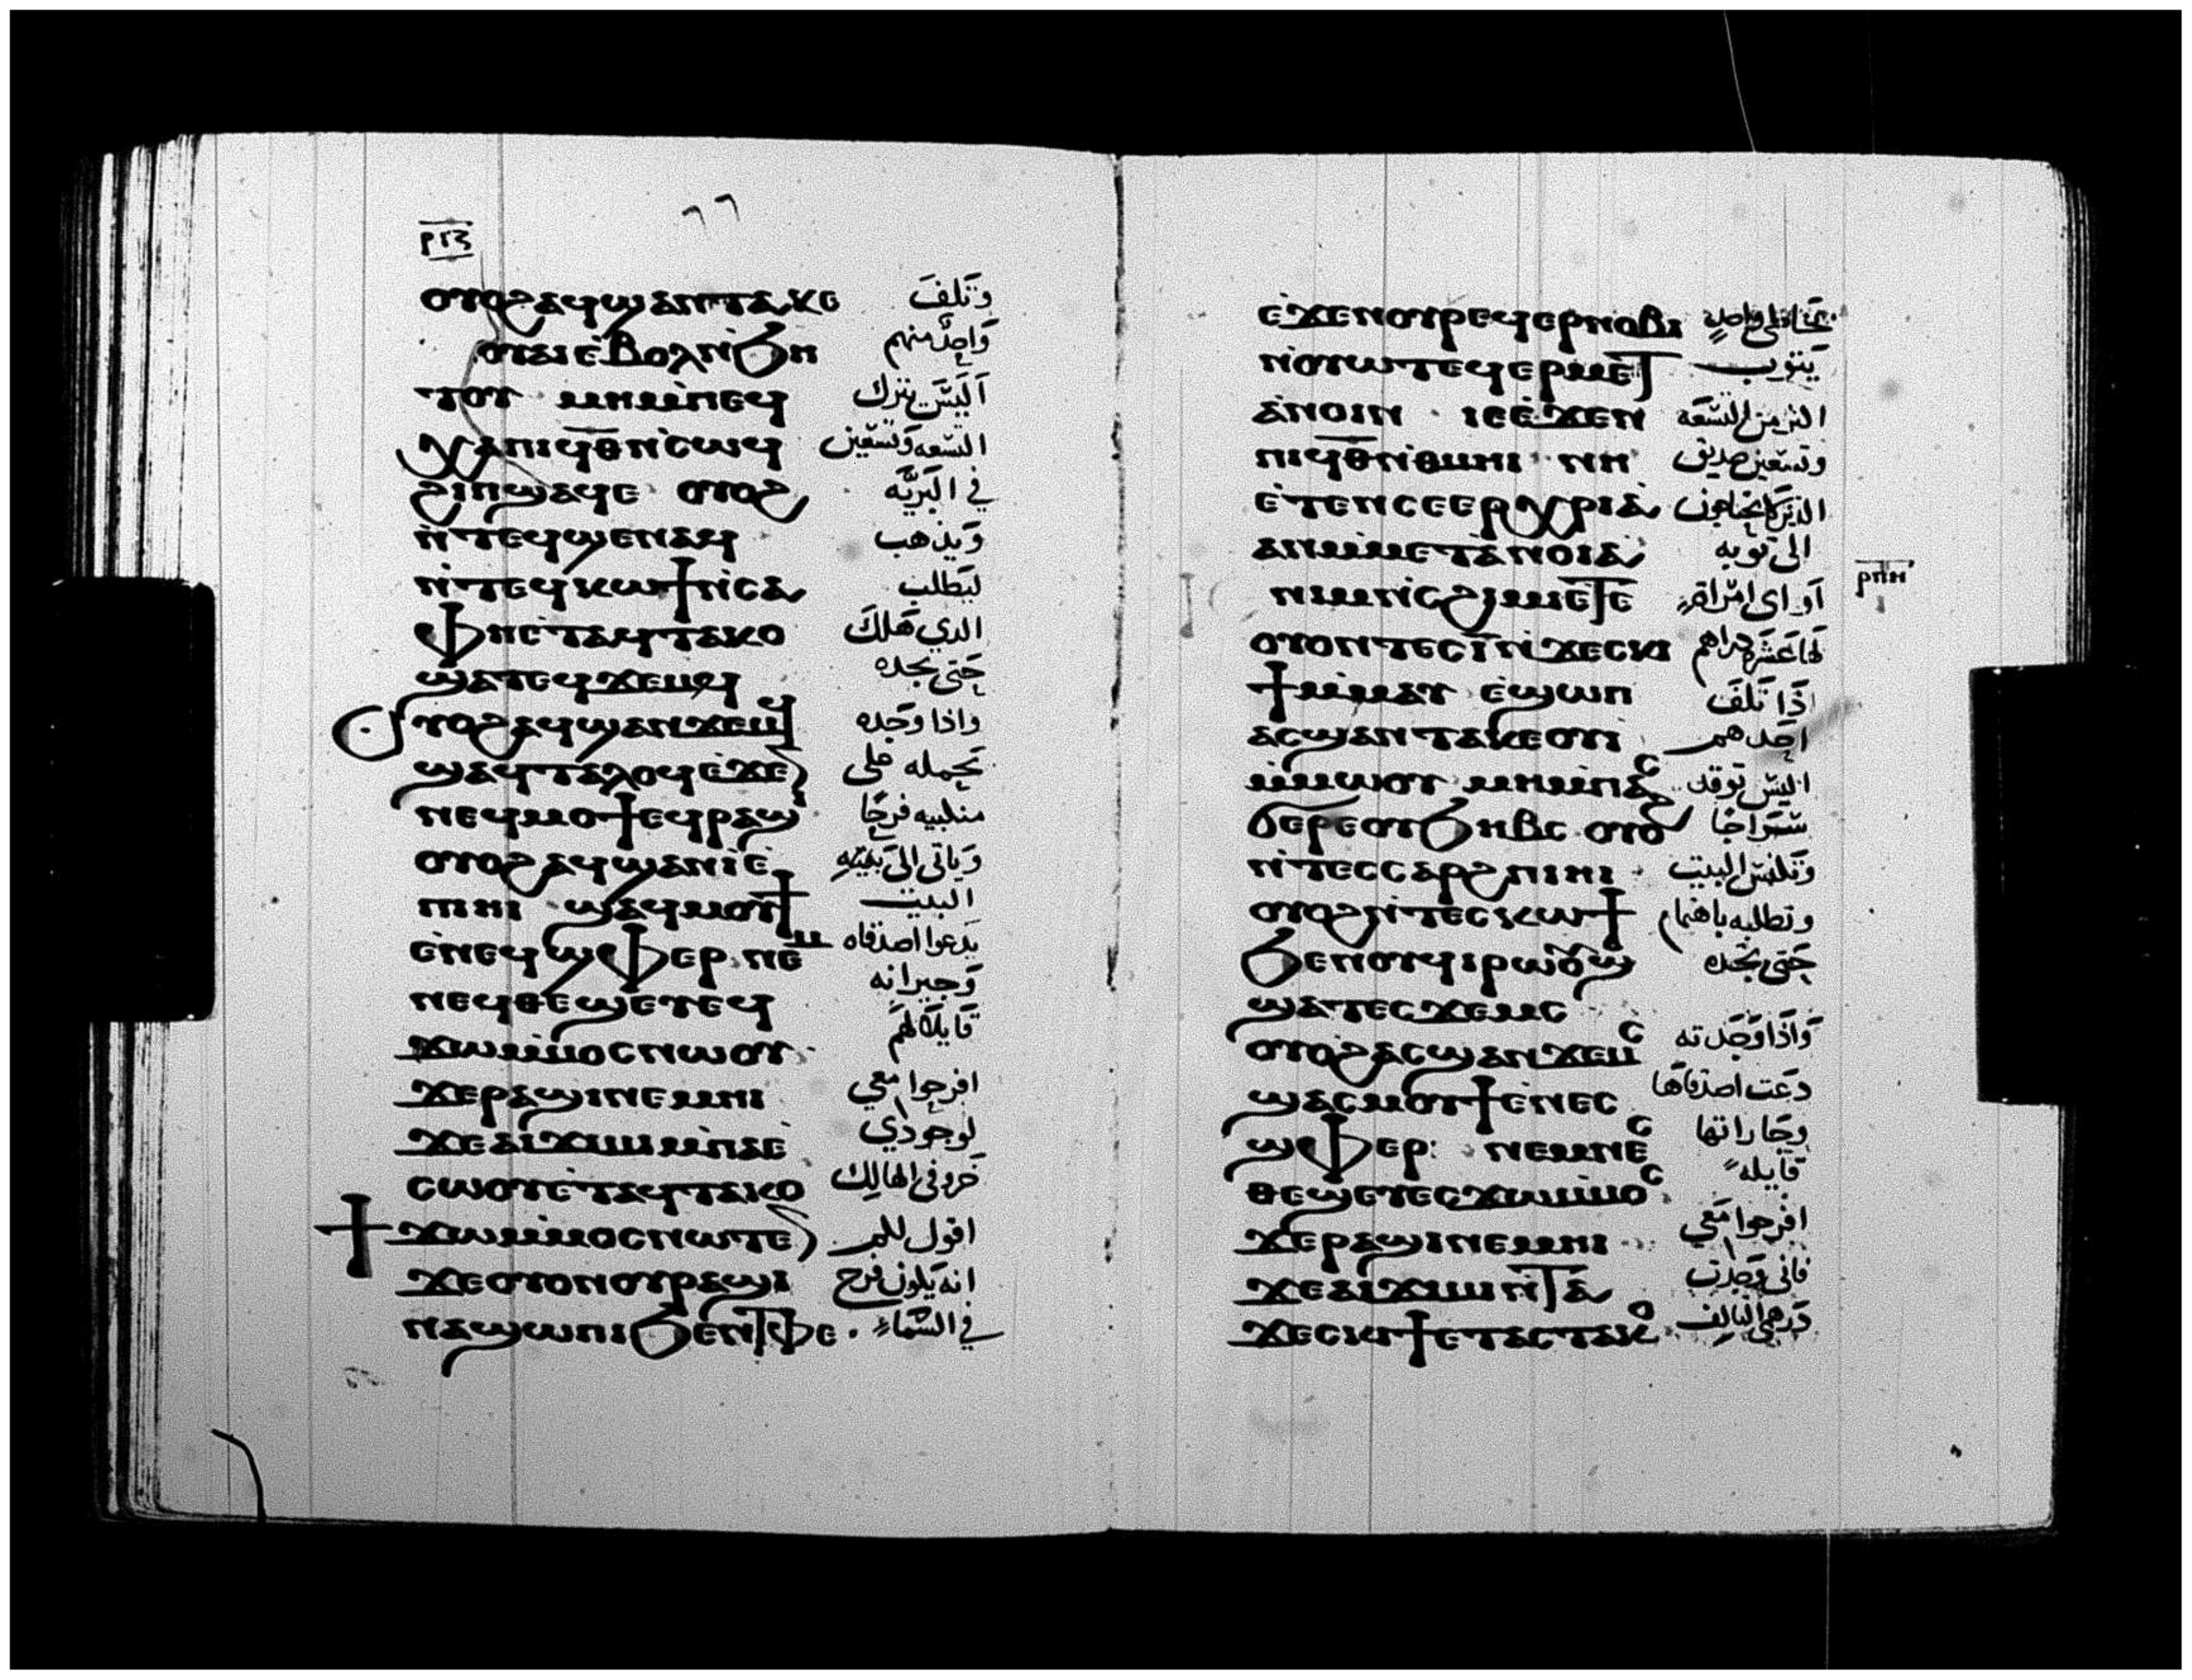 ⲣⲡⲍ
٦٦
ⲟⲩⲟϩⲁϥϣⲁⲛⲧⲁⲕⲉ وَتَلفَ
ⲟⲩⲁⲓⲉ̀ⲃⲟⲗⲛ̀ϧⲏ وَاحِدٌ منهم
ⲧⲟⲩ ⲙⲏⲙ̀ⲡⲉϥ اَلَيسَ يترك
ⲭⲁⲡⲓϥ̅ⲑ̅ⲛ̀ⲥⲱϥ التسعه وَتسعين
ϩⲓⲡϣⲁϥⲉ ⲟⲩⲟϩ في البَريَّه
ⲛ̀ⲧⲉϥϣⲉⲛⲁϥ وَيذهب
ⲛ̀ⲧⲉϥⲕⲱϯⲛ̀ⲥⲁ ليَطلب
ⲫⲏⲉⲧⲁϥⲧⲁⲕⲟ الدي هَلكَ
ϣⲁⲧⲉϥϫⲉⲙϥ حَتى يجده
ⲟⲩⲟϩⲁϥϣⲁⲛϫⲉⲙϥ واذا وَجَده
ϣⲁϥⲧⲁⲗⲟϥⲉ̀ϫⲉⲛ يَحمله على
ⲛⲉϥⲙⲟϯⲉϥⲣⲁϣⲓ منكبيه فرحًا
ⲟⲩⲟϩⲁϥϣⲁⲛⲓ̀ⲉ̀ وَياتى الى بَيته
ⲡⲓⲏⲓ ϣⲁϥⲙⲟⲩϯ البيت
ⲉ̀ⲛⲉϥϣⲫⲉⲣ ⲛⲉⲙ يَدعوا اصدقاه
ⲛⲉϥⲑⲉϣⲉⲧⲉϥ وَجيرانه
ϫⲱⲙ̀ⲙⲟⲥⲛⲱⲟⲩ قَايلًا لهَم
ϫⲉⲣⲁϣⲓⲛⲉⲙⲏⲓ افرحوا معي
ϫⲉⲁⲓϫⲓⲙⲓⲙ̀ⲡⲁⲉ̀ لوجودي
ⲥⲱⲟⲩⲉ̀ⲧⲁϥⲧⲁⲕⲟ خَروفى الهالِك
ϯϫⲱⲙ̀ⲙⲟⲥⲛⲱⲧⲉⲛ اقول لكم
ϫⲉⲟⲩⲟⲛⲟⲩⲣⲁϣⲓ انه يَكون فرح
ⲛⲁϣⲱⲡⲓϧⲉⲛⲧⲫⲉ في السَّمَاءِ
ⲉ̀ϫⲉⲛⲟⲩⲣⲉϥⲉⲣⲛⲟⲃⲓ واحدٍ
ⲛ̀ⲟⲩⲱⲧⲉϥⲉⲣⲙⲉⲧ يَتوب
ⲁ̀ⲛⲟⲓⲛ ⲓⲥⲉ̀ϫⲉⲛ اكثر من التسعَه
ⲡⲓϥ̅ⲑ̅ⲛ̀ⲑⲙⲏⲓ ⲛⲏ وتسَعين صديق
ⲉ̀ⲧⲉⲛⲥⲉⲉⲣⲭⲣⲓⲁ̀ الدَين لا يَحتاجون
ⲁⲛⲙ̀ⲙⲉⲧⲁ̀ⲛⲟⲓⲁ̀ الى توبه
ⲛⲓⲙⲛ̀ⲥϩⲓⲙⲓⲉ̀ⲧⲉ اَو اى امرَاةٍ ⲣⲡⲏ
ⲟⲩⲟⲛⲧⲉⲥⲓ̅ⲛ̀ϫⲉⲥⲕⲓ لهَا عَشَرة دراهم
ϯⲙ̀ⲙⲁⲩ ⲉ̀ϣⲱⲡ اذَا تَلفَ
ⲁⲥϣⲁⲛⲧⲁⲕⲉⲟⲩⲓ̀ احَدهم
ⲙ̀ⲙⲱⲟⲩ ⲙⲏⲙ̀ⲡⲁⲥ اليسَ توقد
ϭⲉⲣⲉⲟⲩϧⲏⲃⲥ ⲟⲩⲟϩ سَرَاجًا
ⲛ̀ⲧⲉⲥⲥⲁⲣϩⲡⲓⲏⲓ وَتكنس البيت
ⲟⲩⲟϩⲛ̀ⲧⲉⲥⲕⲱϯ وتطلبه باهتمام
ϧⲉⲛⲟⲩϥⲓⲣⲱⲟⲩϣ حَتى تجده
ϣⲁⲧⲉⲥϫⲉⲙⲥ
ⲟⲩⲟϩⲁⲥϣⲁⲛϫⲉⲙⲥ وَاذَا وَجَدته
ϣⲁⲥⲙⲟⲩϯⲉ̀ⲛⲉⲥ دعَت اصدقاهَا
ϣⲫⲉⲣ: ⲛⲉⲙⲛⲉⲥ وجَاراتها
ⲑⲉϣⲉⲧⲉⲥϫⲱⲙ̀ⲙⲟⲥ قايله
ϫⲉⲣⲁϣⲓⲛⲉⲙⲏⲓ افرحوا مَعي
ϫⲉⲁⲓϫⲓⲙⲓⲛ̀ⲧⲁ̀ فانى وَجدت
ϫⲉⲥⲕⲓϯⲉⲧⲁⲥⲧⲁⲕⲟ دَرهَمي التالف